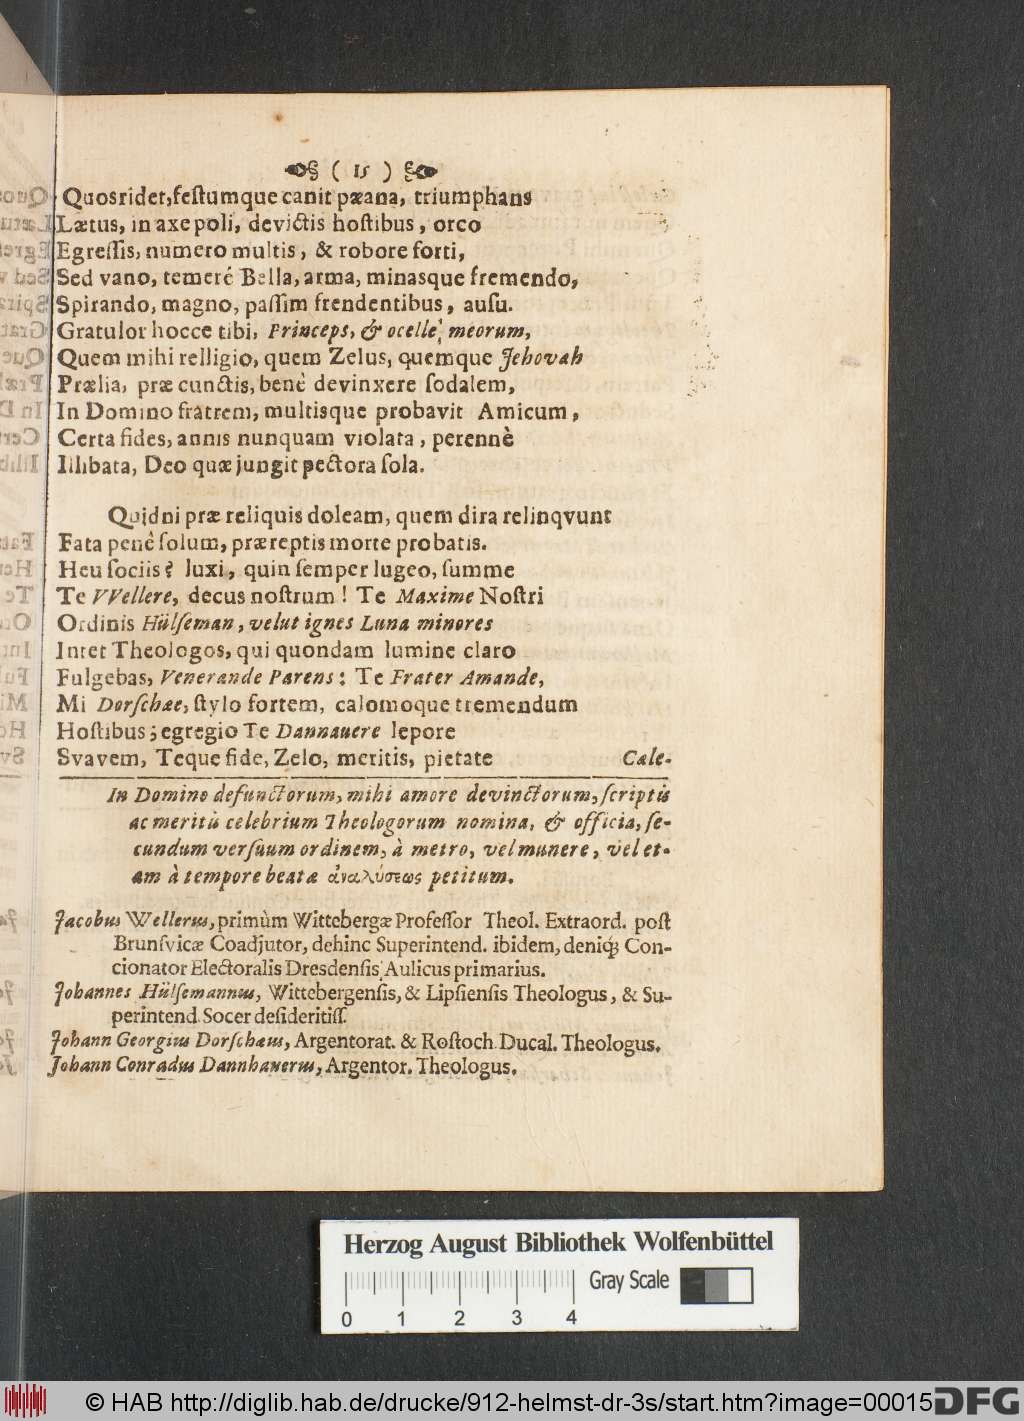 ( 15 )
Quos ridet, feſtumque canit pæana, triumphans
Lætus, in axe poli, devictis hoſtibus, orco
Egreſſis, numero multis, & robore forti,
Sed vano, temerè Bella, arma, minasque fremendo,
Spirando, magno, paſſim frendentibus, auſu.
Gratulor hocce tibi, Princeps, & ocelle, meorum,
Quem mihi relligio, quem Zelus, quemque Jehovah
Prælia, præ cunctis, benè devinxere ſodalem,
In Domino fratrem, multisque probavit Amicum,
Certa fides, annis nunquam violata, perennè
Illibata, Deo quæ jungit pectora ſola.
Quidni præ reliquis doleam, quem dira relinqvunt
Fata penè ſolum, præreptis morte probatis.
Heu ſociis? luxi, quin ſemper lugeo, ſumme
Te VVellere, decus noſtrum! Te Maxime Noſtri
Ordinis Hülſeman, velut ignes Luna minores
Inter Theologos, qui quondam lumine claro
Fulgebas, Venerande Parens: Te Frater Amande,
Mi Dorſchæe, ſtylo fortem, calomoque tremendum
Hoſtibus; egregio Te Dannauere lepore
Svavem, Teque fide, Zelo, meritis, pietate Cale-
In Domino defunctorum, mihi amore devinctorum, ſcriptis
ac meritis celebrium Theologorum nomina, & officia, ſe-
cundum verſuum ordinem, à metro, vel munere, vel et-
am à tempore beatæ ἀναλύσεως petitum.
Jacobus Wellerus, primùm Wittebergæ Profeſſor Theol. Extraord. poſt
Brunſvicæ Coadjutor, dehinc Superintend. ibidem, deniq; Con-
cionator Electoralis Dresdenſis Aulicus primarius.
Johannes Hülſemannus, Wittebergenſis, & Lipſienſis Theologus, & Su-
perintend. Socer deſideritiſſ.
Johann Georgius Dorſchæus, Argentorat. & Roſtoch. Ducal. Theologus.
Johann Conradus Dannhauerus, Argentor. Theologus.
Herzog August Bibliothek Wolfenbüttel
Gray Scale
0 1 2 3 4
© HAB http://diglib.hab.de/drucke/912-helmst-dr-3s/start.htm?image=00015
DFG